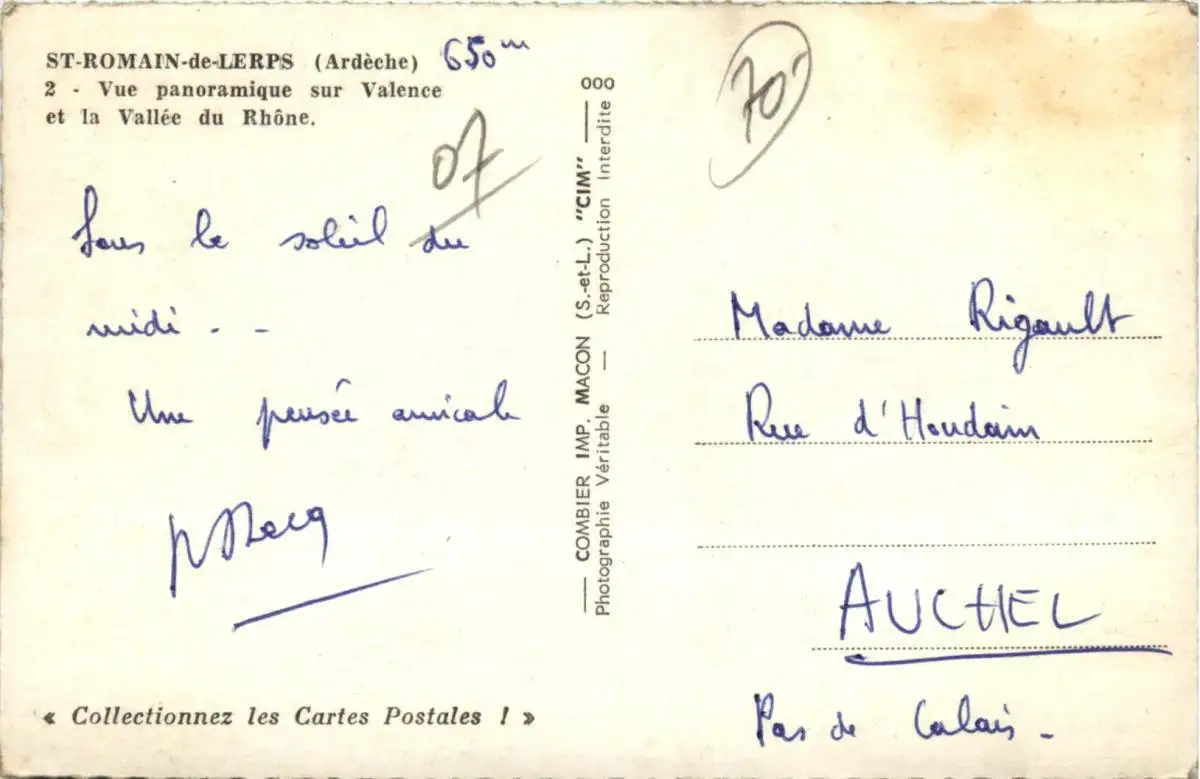 ST-ROMAIN-de-LERPS (Ardèche) 650 m
2 - Vue panoramique sur Valence
et la Vallée du Rhône.
07
Sous le soleil du
midi . - -
Une pensée amicale
« Collectionnez les Cartes Postales ! »
000
COMBIER IMP. MACON (S.-et-L.) "CIM"
Photographie Véritable — Reproduction Interdite
70
Madame Rigault
Rue d'Houdain
AUCHEL
Pas de Calais -